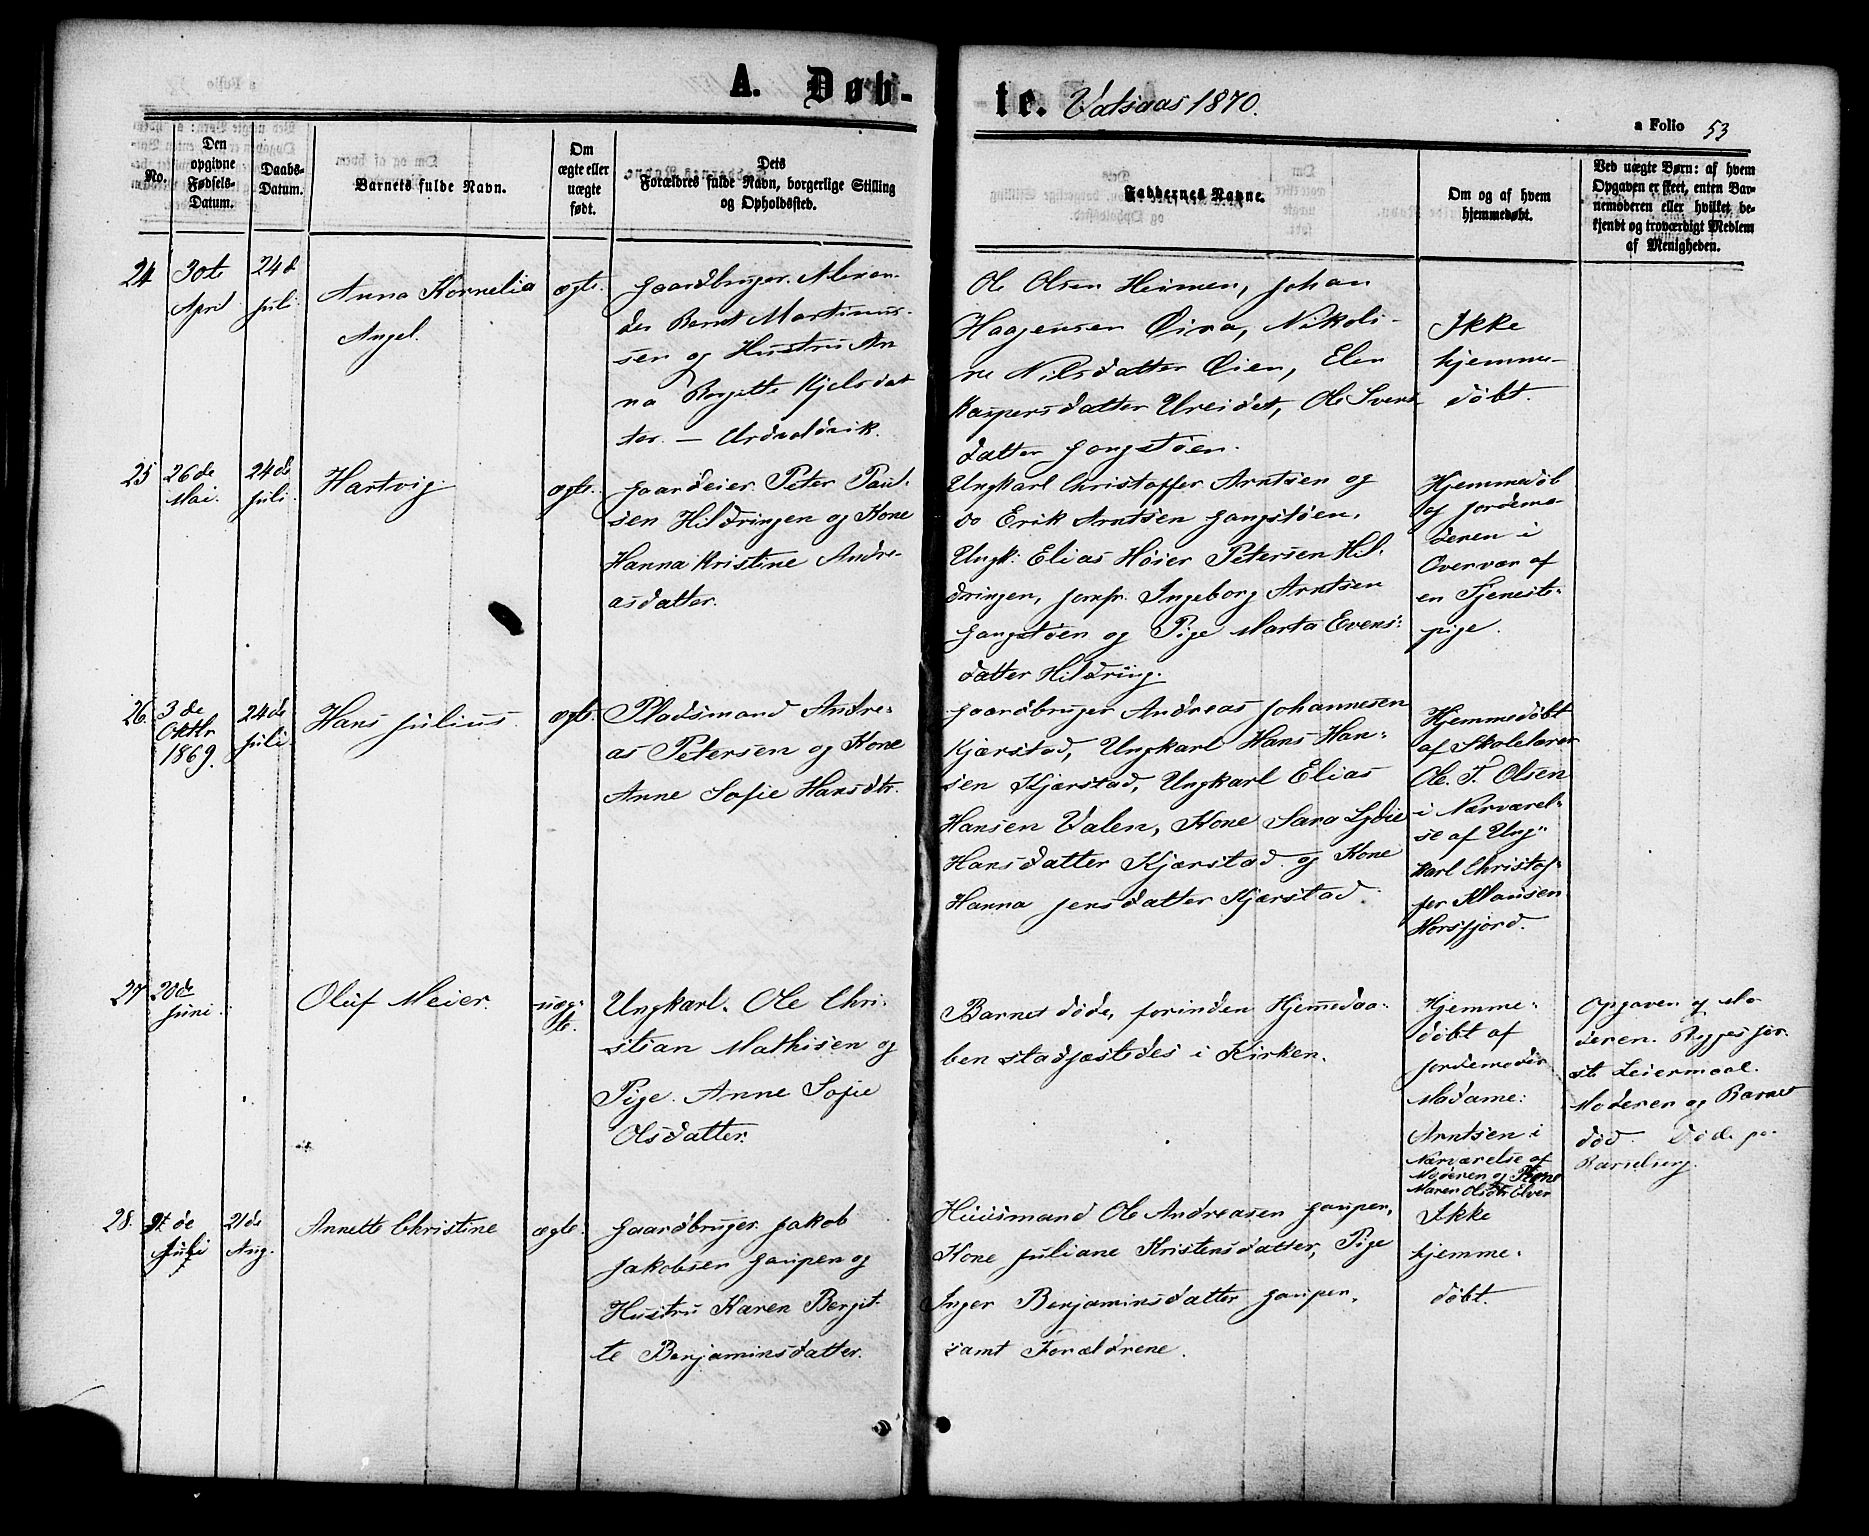 A. Døb-
te. Vatsaas 1870.
a Folio 53
No.
Den
opgivne
Fødsels-
Datum.
Daabs-
Datum.
Barnets fulde Navn.
Om
ægte eller
uægte
født.
Dets
Forældres fulde Navn, borgerlige Stilling
og Opholdssted.
Faddernes Navne.
Om og af hvem
hjemmedøbt.
Ved uægte Børn: af hvem
Opgaven er skeet, enten Bar-
nemoderen eller hvilket be-
kjendt og troværdigt Medlem
af Menigheden.
24
30te
April
24d
Juli.
Anna Kornelia
Angel.
ægte.
Gaardbruger
Bernt Martinus-
sen og Hustru An
na Bergitte Kjelsdat
ter. —
Ole Olsen Heimen, Johan
Haagensen Øira, Nikoli-
ne Nilsdatter Øien, Elen
Kaspersdatter Ureidet, Ole Sverts
datter Gangstøen.
Ikke
hjemme-
døbt.
25
26de
Mai.
24de
Juli.
Hartvig.
ægte.
Gaardeier Peter Paul-
sen Hildringen og Kone
Hanna Kristine Andre-
asdatter.
Ungkarl Christoffer Arntsen og
do Erik Arntsen Gangstøen,
Ungk: Elias Høier Petersen Hil-
dringen, Jomfr. Ingeborg Arntsen
Gangstøen og Pige Marta Evens-
datter Hildring.
Hjemmedøb
og Jordemo-
deren i
Overvær af
en Tjeneste-
pige.
26.
3de
Oktbr
1869.
24de
Juli.
Hans Julius.
ægte.
Pladsmand Andre-
as Petersen og Kone
Anne Sofie Hansdtr.
Gaardbruger Andreas Johannesen
Kjærstad, Ungkarl Hans Han-
sen Kjærstad, Ungkarl Elias
Hansen Valen, Kone Sara Lydie
Hansdatter Kjærstad og Kone
Hanna Jensdatter Kjærstad.
Hjemmedøbt
af Skolelærer
Ole T. Olsen
i Nærværel-
se af Ung-
karl Christof-
fer Klausen
Horsfjord.
27
20de
Juni.
Oluf Meier.
uæg-
te.
Ungkarl. Ole Chri-
stian Mathisen og
Pige. Anne Sofie
Olsdatter.
Barnet døde, forinden Hjemmedaa-
ben stadfæstedes i Kirken.
Hjemme-
døbt af
Jordemoder
Madame:
Arntsen i
Nærværelse af
Moderen og Kone
Maren Olsdtr Elver
Opgaven af Mo
deren. Begges før-
ste Leiermaal.
Moderen og Barnet
død. Døde paa
Barselseng.
28.
Juli
21de
Aug.
Annette Christine
ægte.
Gaardbruger Jakob
Jakobsen Gaupen og
Hustru Karen Bergit-
te Benjaminsdatter.
Huusmand Ole Andreasen Gaupen,
Kone Juliane Kristensdatter, Pige
Inger Benjaminsdatter Gaupen,
samt Forældrene.
Ikke
hjemme-
døbt.